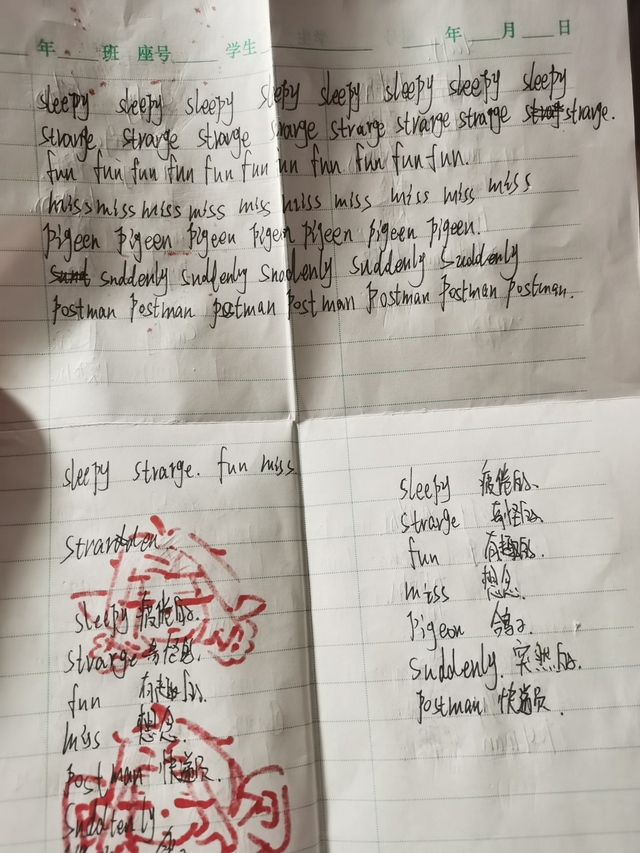 年 班 座号 学生 年 月 日
sleepy sleepy sleepy sleepy sleepy sleepy sleepy sleepy
strarge strarge strarge strarge strarge strarge strarge strarge.
fun fun fun fun fun fun fun fun fun fun fun.
miss miss miss miss miss miss miss miss miss miss
pigeen pigeen pigeen pigeen pigeen pigeen pigeen.
suddenly suddenly suddenly suddenly suddenly
postman postman postman postman postman postman postman.
sleepy strarge. fun miss
strardden
sleepy 疲倦的.
strarge 奇怪的.
fun 有趣的.
miss 想念.
postman 快递员.
suddtenly
sleepy 疲倦的.
strarge 奇怪的.
fun 有趣的.
miss 想念.
pigeon 鸽子.
suddenly. 突然的.
postman 快递员.